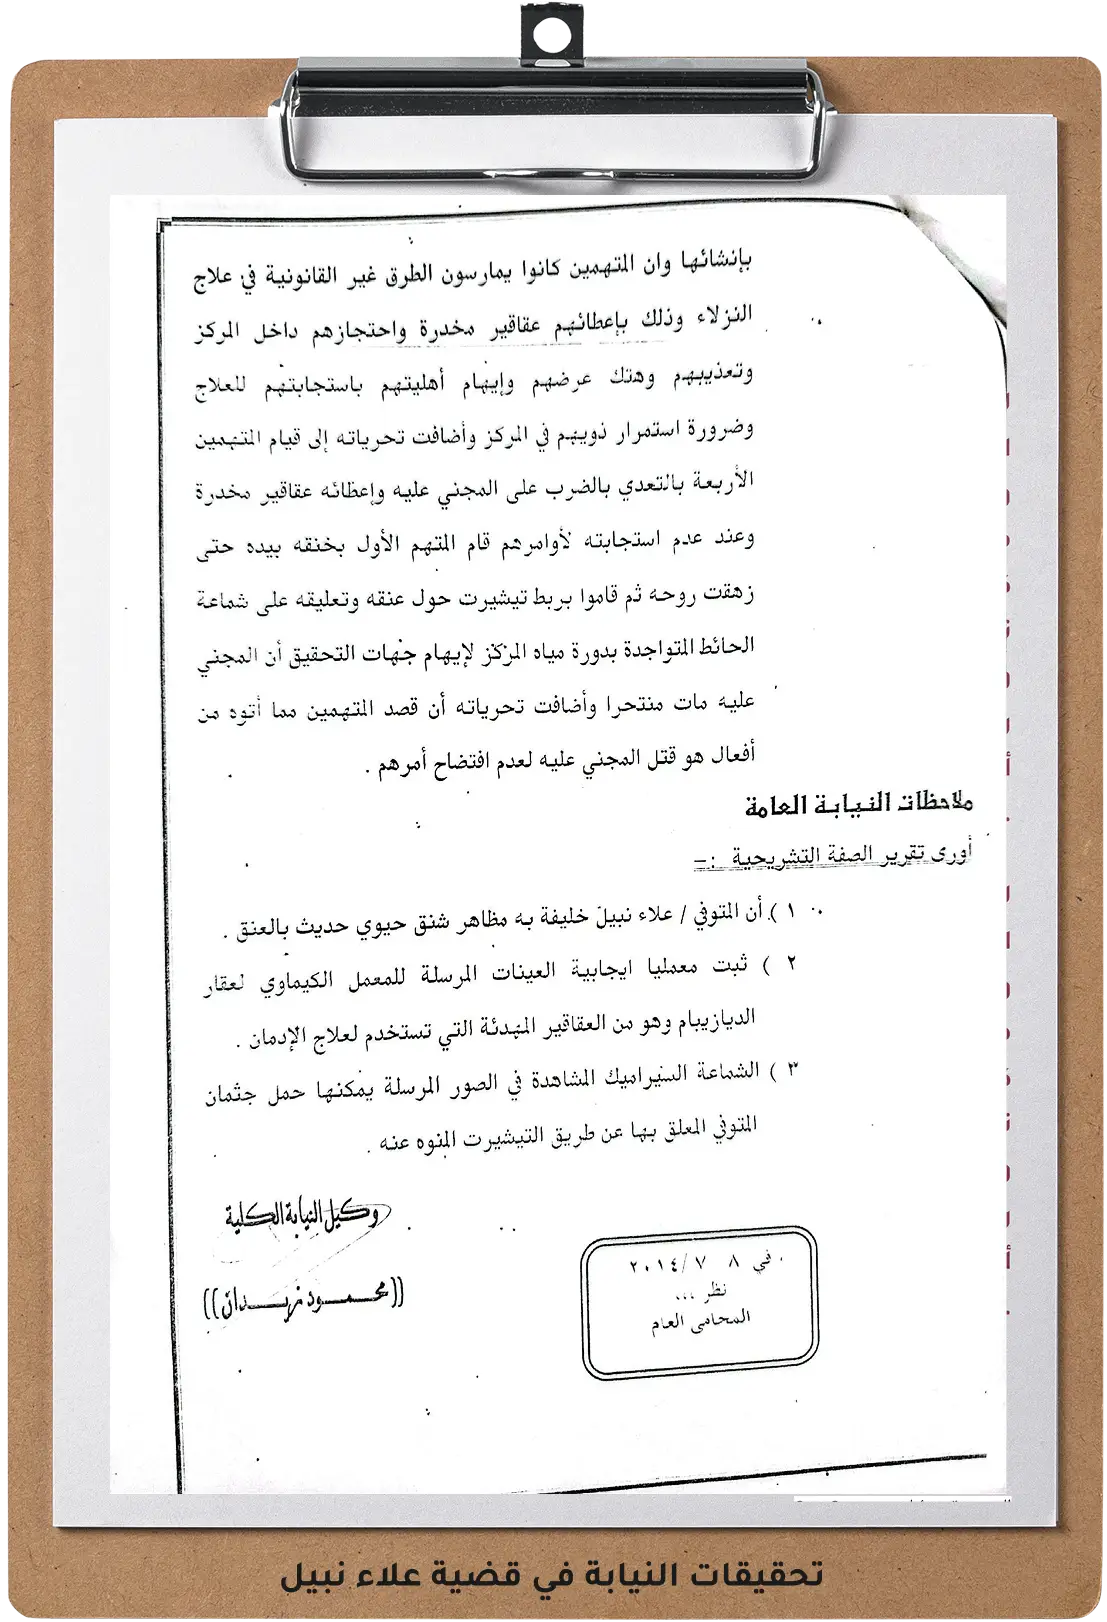 بإنشائها وان المتهمين كانوا يمارسون الطرق غير القانونية في علاج
النزلاء وذلك بإعطائهم عقاقير مخدرة واحتجازهم داخل المركز
وتعذيبهم وهتك عرضهم وإيهام أهليتهم باستجابتهم للعلاج
وضرورة استمرار ذويهم في المركز وأضافت تحرياته إلى قيام المتهمين
الأربعة بالتعدي بالضرب على المجني عليه وإعطائه عقاقير مخدرة
وعند عدم استجابته لأوامرهم قام المتهم الأول بخنقه بيده حتى
زهقت روحه ثم قاموا بربط تيشيرت حول عنقه وتعليقه على شماعة
الحائط المتواجدة بدورة مياه المركز لإيهام جهات التحقيق أن المجني
عليه مات منتحرا وأضافت تحرياته أن قصد المتهمين مما أتوه من
أفعال هو قتل المجني عليه لعدم افتضاح أمرهم .
ملاحظات النيابة العامة
أورى تقرير الصفة التشريحية :-
١ ) أن المتوفي / علاء نبيل خليفة به مظاهر شنق حيوي حديث بالعنق .
٢ ) ثبت معمليا ايجابية العينات المرسلة للمعمل الكيماوي لعقار
الديازيبام وهو من العقاقير المهدئة التي تستخدم لعلاج الإدمان .
٣ ) الشماعة السيراميك المشاهدة في الصور المرسلة يمكنها حمل جثمان
المتوفي المعلق بها عن طريق التيشيرت المنوه عنه .
وكيل النيابة الكلية
((محمود زيدان))
في ٨ / ٧ / ٢٠١٤
نظر ...
المحامى العام
تحقيقات النيابة في قضية علاء نبيل